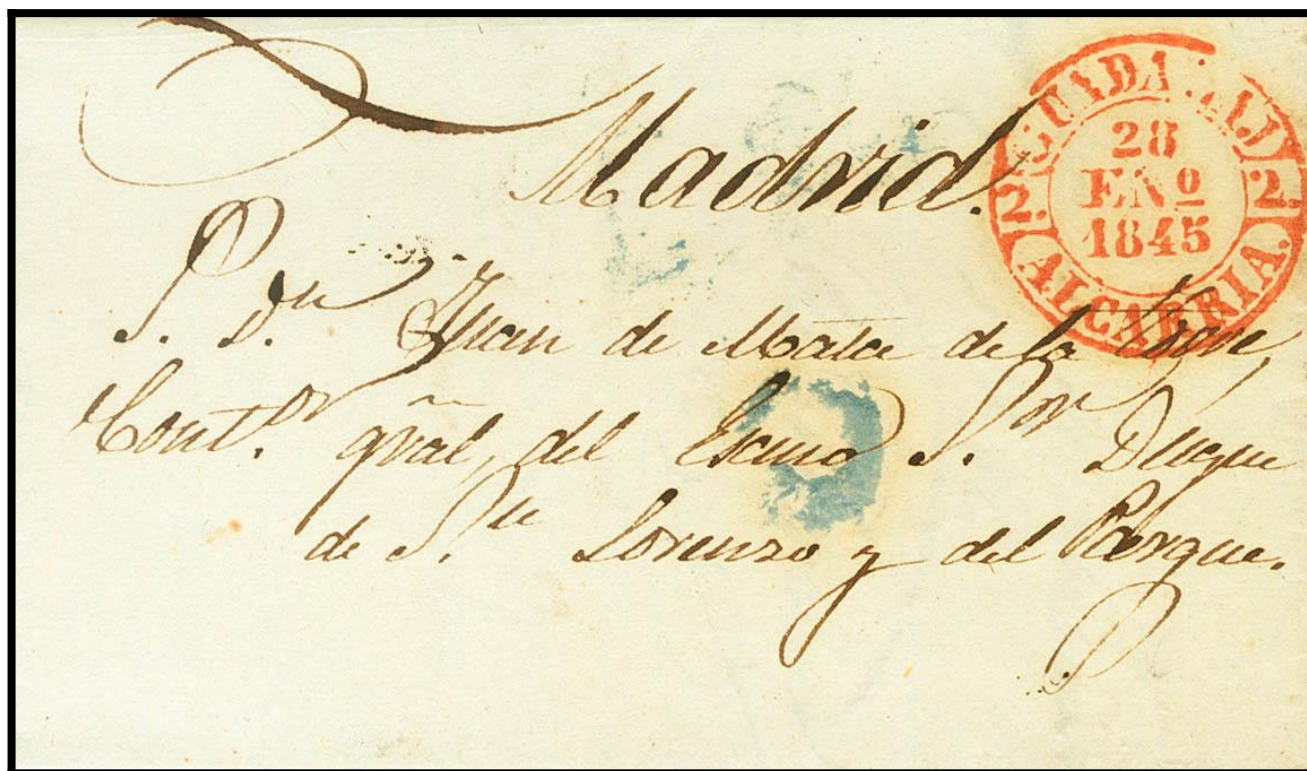 Madrid.
GUADALAJ
2. 2.
28
ENº
1845
ALCARRIA.
S. Dn Juan de Mata de la Torre,
Contor gral, del Escmo Sor Duque
de Sn Lorenzo y del Parque.